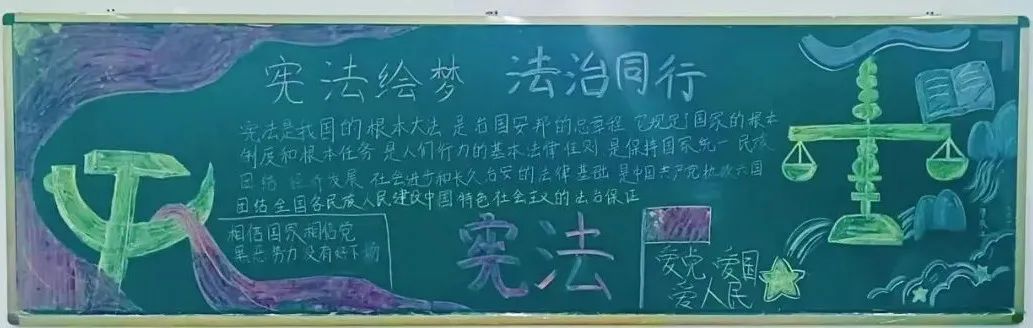 宪法绘梦 法治同行
宪法是我国的根本大法 是治国安邦的总章程 它规定了国家的根本
制度和根本任务 是人们行为的基本法律准则 是保持国家统一 民族
团结 经济发展 社会进步和长久治安的法律基础 是中国共产党执政兴国
团结全国各民族人民建设中国特色社会主义的法治保证
相信国家相信党
黑恶势力没有好下场
宪法
爱党 爱国
爱人民